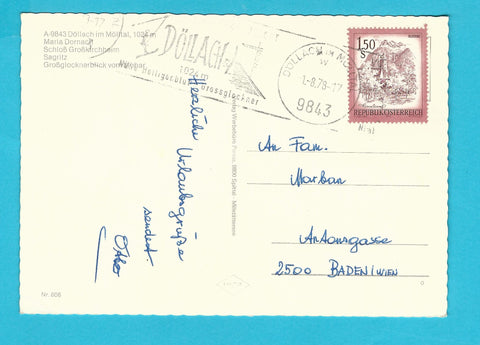 A-9843 Döllach im Mölltal, 1024 m
Maria Dornach
Schloß Großkirchheim
Sagritz
Großglocknerblick vom
DÖLLACH
1024 m
Heiligenblut Grossglockner
DÖLLACH IM
9843
1.50
S
REPUBLIK ÖSTERREICH
Herzliche Urlaubsgrüße
sendet
An Fam.
Marban
Antonsgasse
2500 BADEN/WIEN
Nr. 608